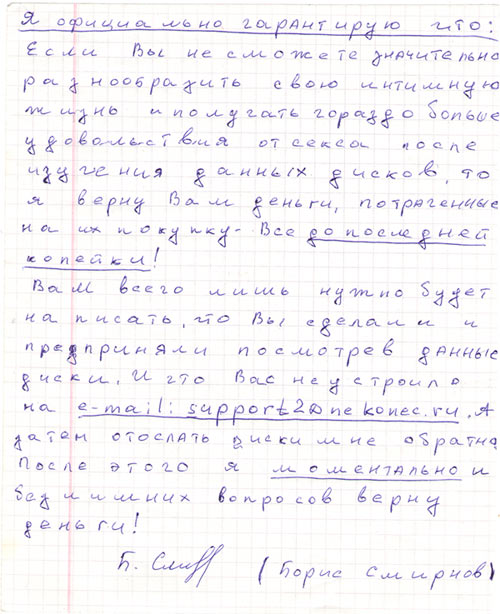 Я официально гарантирую что:
Если Вы не сможете значительно
разнообразить свою интимную
жизнь и получать гораздо больше
удовольствия от секса после
изучения данных дисков, то
я верну Вам деньги, потраченные
на их покупку - Все до последней
копейки!
Вам всего лишь нужно будет
написать, что Вы сделали и
предприняли посмотрев данные
диски. И что Вас не устроило
на e-mail: support2@nekonec.ru. А
затем отослать диски мне обратно.
После этого я моментально и
без лишних вопросов верну
деньги!
(Борис Смирнов)